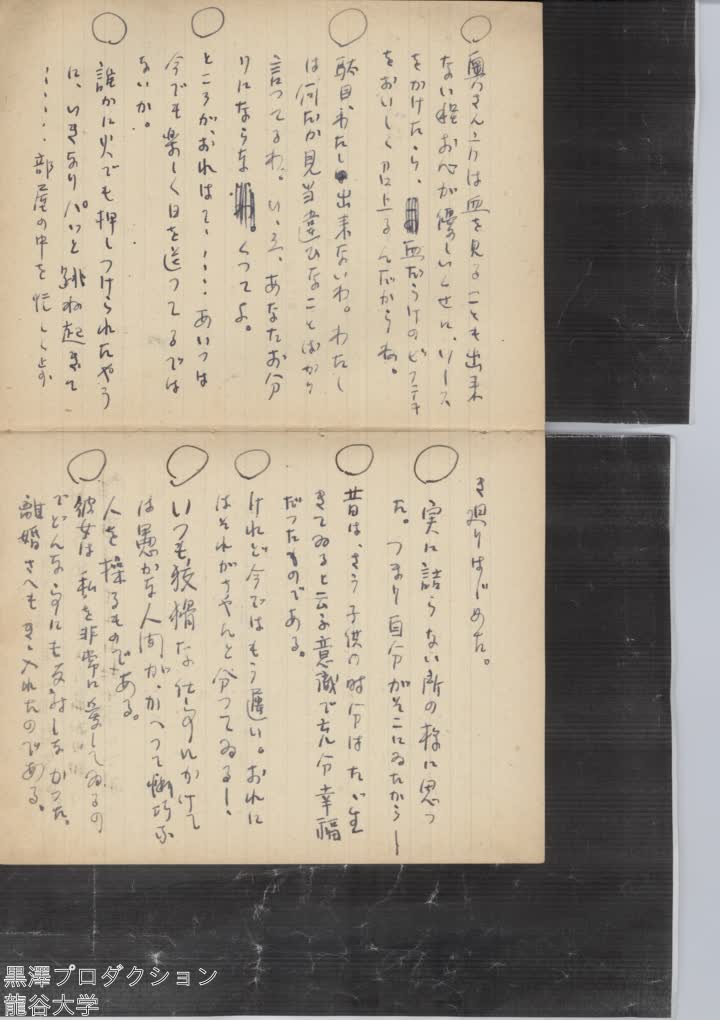 ○
奥さん方は血を見ることも出来
ない程お心が優しいくせに、ソース
をかけたら、血だらけのビフテキ
をおいしく召上るんだからね。
○
駄目、わたし出来ないわ。わたし
は何だか見当違ひなことばかり
言つてるわ。いゝえ、あなたお分
りにならなくつてよ。
○
ところが、おれはて、‥‥あいつは
今でも楽しく日を送つてるでは
ないか。
○
誰かに火でも押しつけられたやう
に、いきなりパッと跳ね起きて
‥‥‥部屋の中を忙しく歩
き廻りはじめた。
○
実に詰らない所の様に思つ
た。つまり自分がそこにゐたから―
○
昔は、さう子供の時分はたゞ生
きてゐると云ふ意識で充分幸福
だつたものである。
○
けれど今ではもう遅い。おれに
はそれがちやんと分つてゐる―、
○
いつも狡猾な仕事にかけて
は愚かな人間が、かへつて悧巧な
人を操るものである。
○
彼女は私を非常に愛してゐるの
でどんな事にも反対しなかつた。
離婚さへもきゝ入れたのである。
黒澤プロダクション
龍谷大学